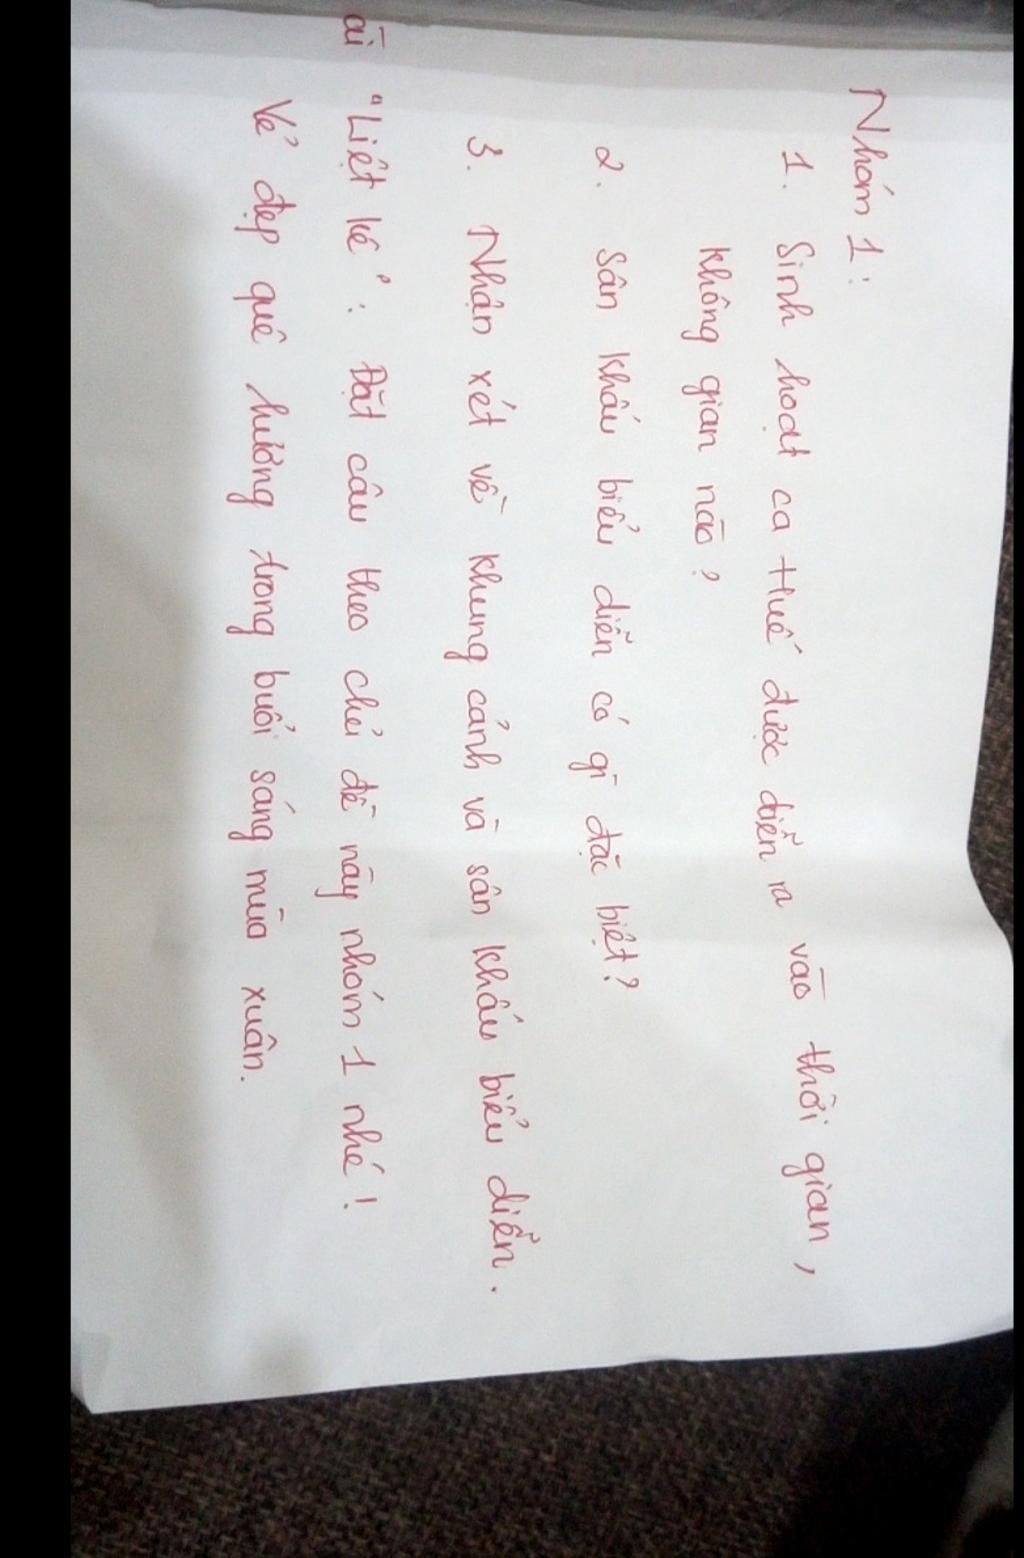 Nhóm 1:
1. Sinh hoạt ca Huế được diễn ra vào thời gian,
không gian nào?
2. Sân khấu biểu diễn có gì đặc biệt?
3. Nhận xét về khung cảnh và sân khấu biểu diễn.
ài "Liệt kê": Đặt câu theo chủ đề này nhóm 1 nhé!
Vẻ đẹp quê hương trong buổi sáng mùa xuân.